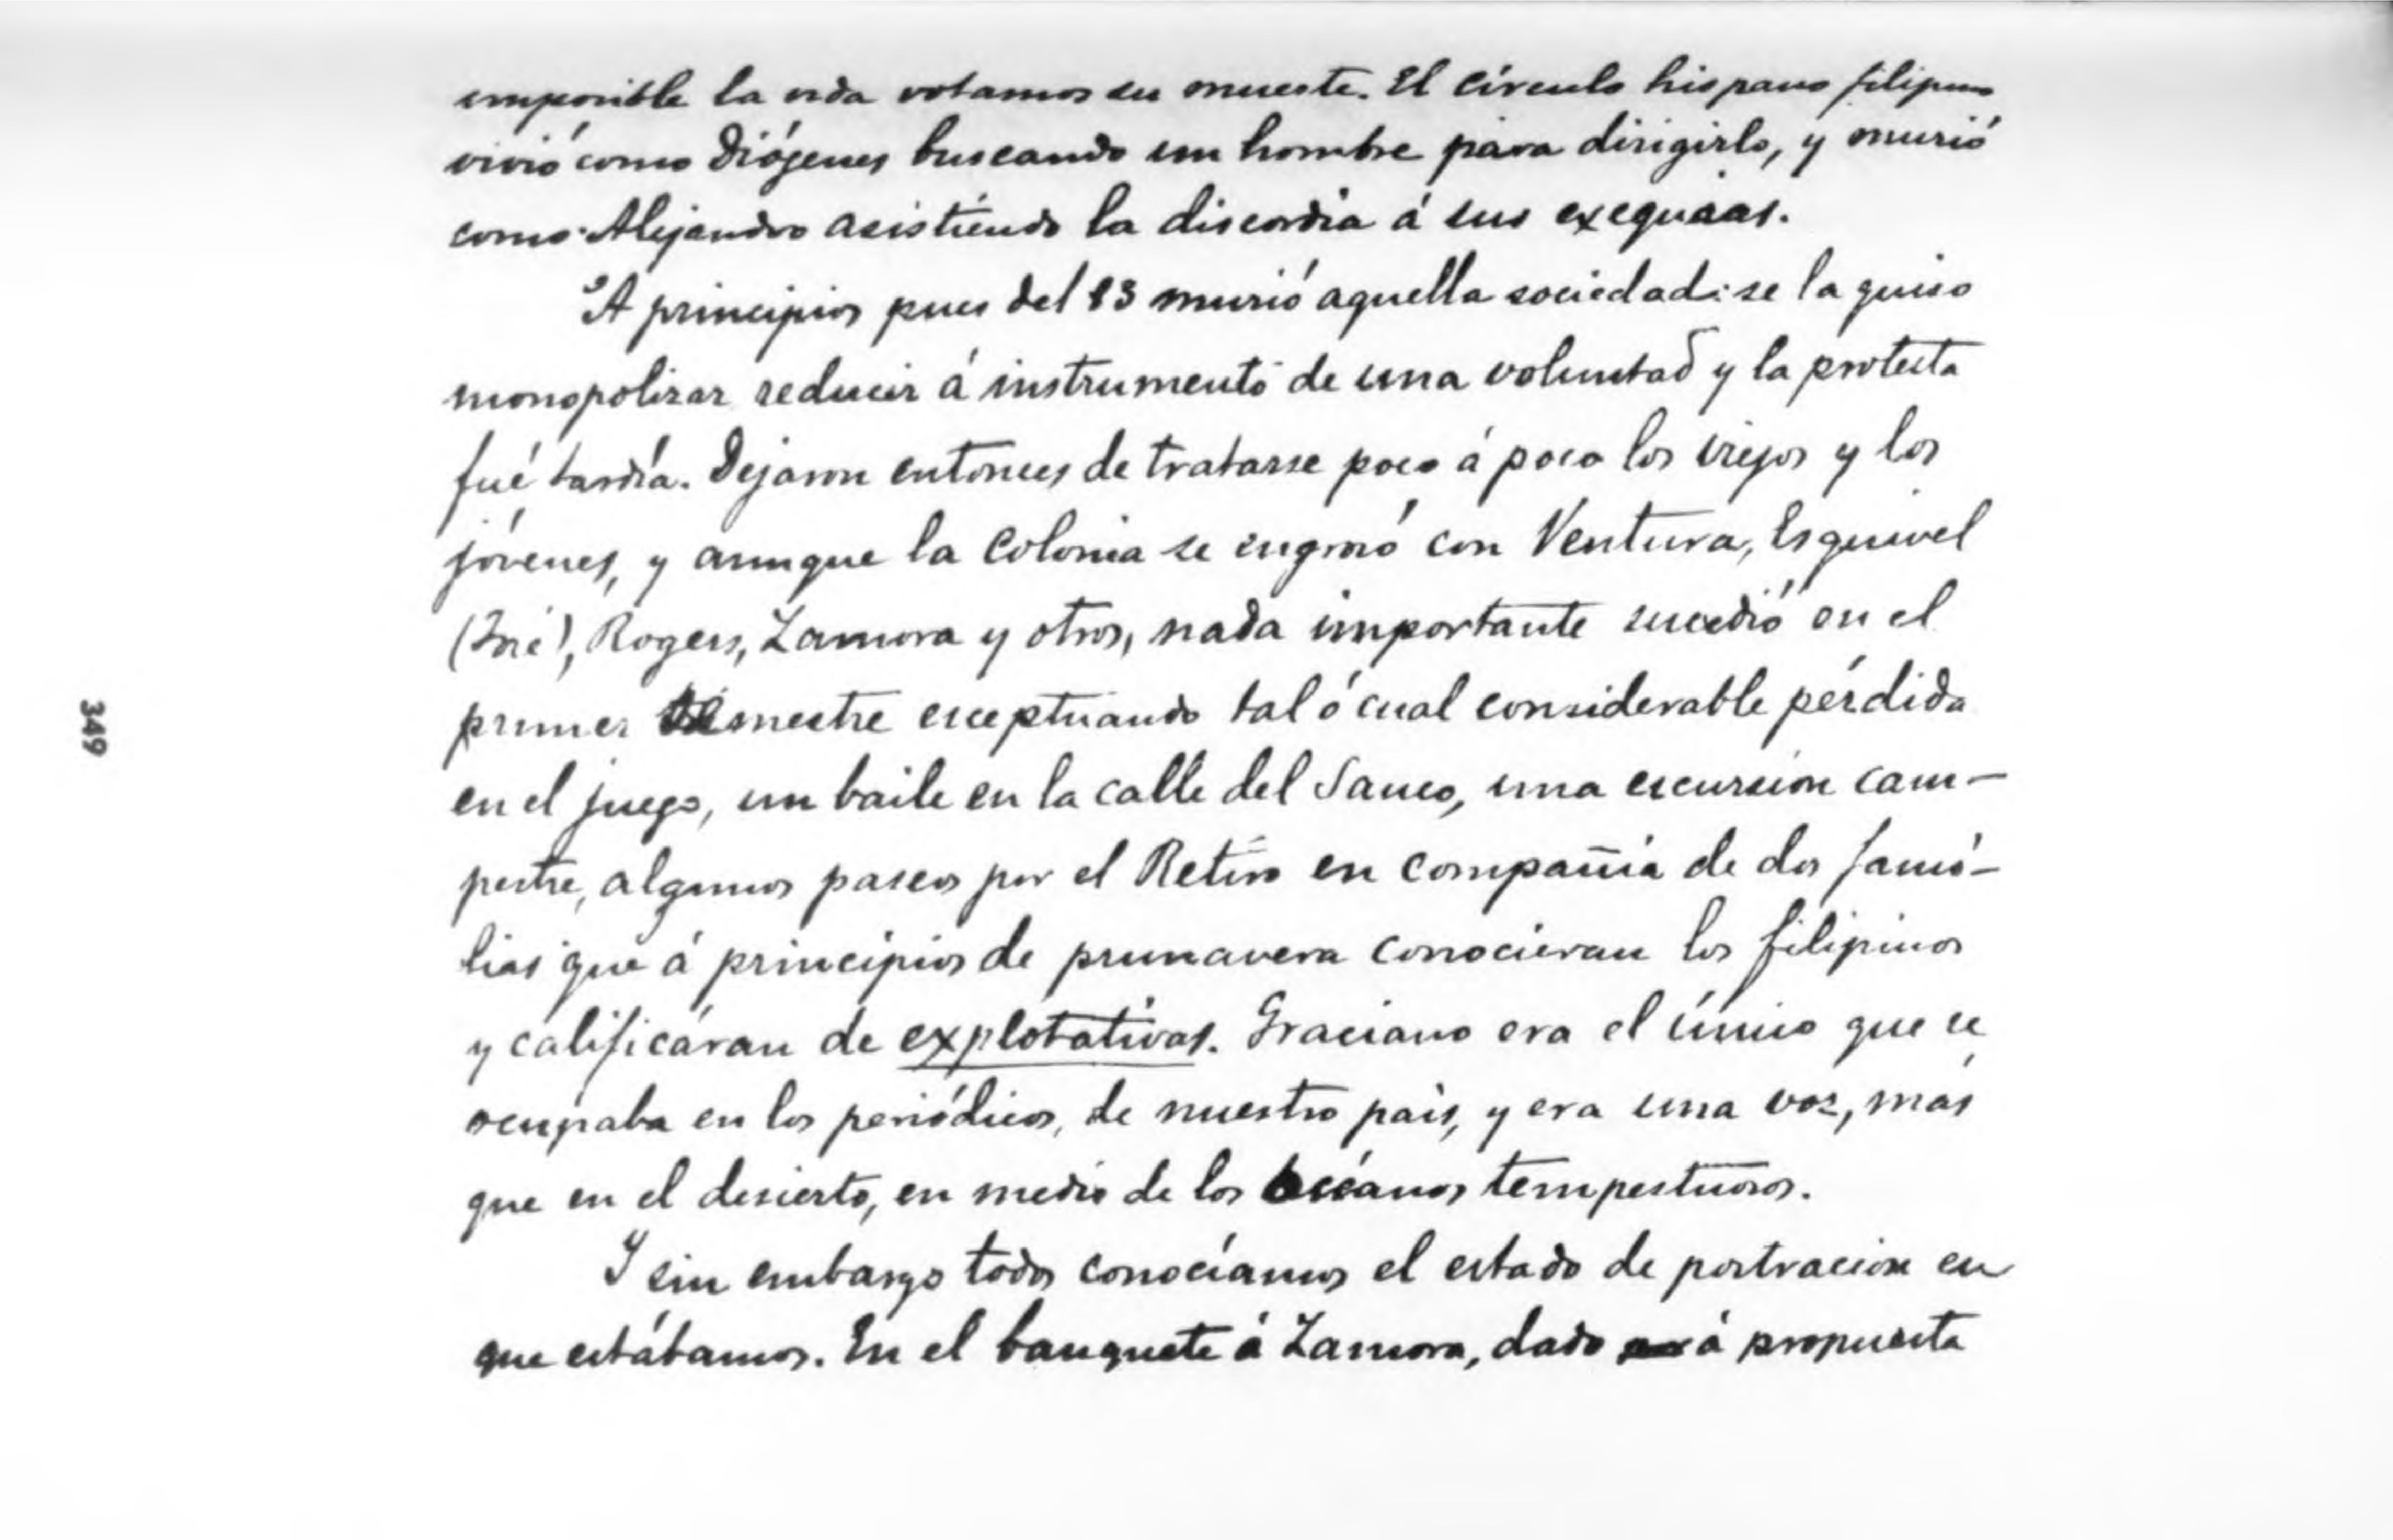 imposible la vida votamos su muerte. El círculo hispano filipino
vivió como Diógenes buscando un hombre para dirigirlo, y murió
como Alejandro asistiendo la discordia á sus exequias.
A principios pues del 83 murió aquella sociedad: se la quiso
monopolizar reducir á instrumento de una voluntad y la protesta
fué tardía. Dejaron entonces de tratarse poco á poco los viejos y los
jóvenes, y aunque la colonia se engrosó con Ventura, Esquivel
(José), Rogers, Zamora y otros, nada importante sucedió en el
primer semestre esceptuando tal ó cual considerable pérdida
en el juego, un baile en la calle del Sauco, una escursion cam-
pestre, algunos paseos por el Retiro en compañía de dos fami-
lias que á principios de primavera conocieran los filipinos
y calificáran de explotativas. Graciano era el único que se
ocupaba en los periódicos, de nuestro pais, y era una voz, más
que en el desierto, en medio de los océanos tempestuosos.
Y sin embargo todos conocíamos el estado de postracion en
que estábamos. En el banquete á Zamora, dado á propuesta
349